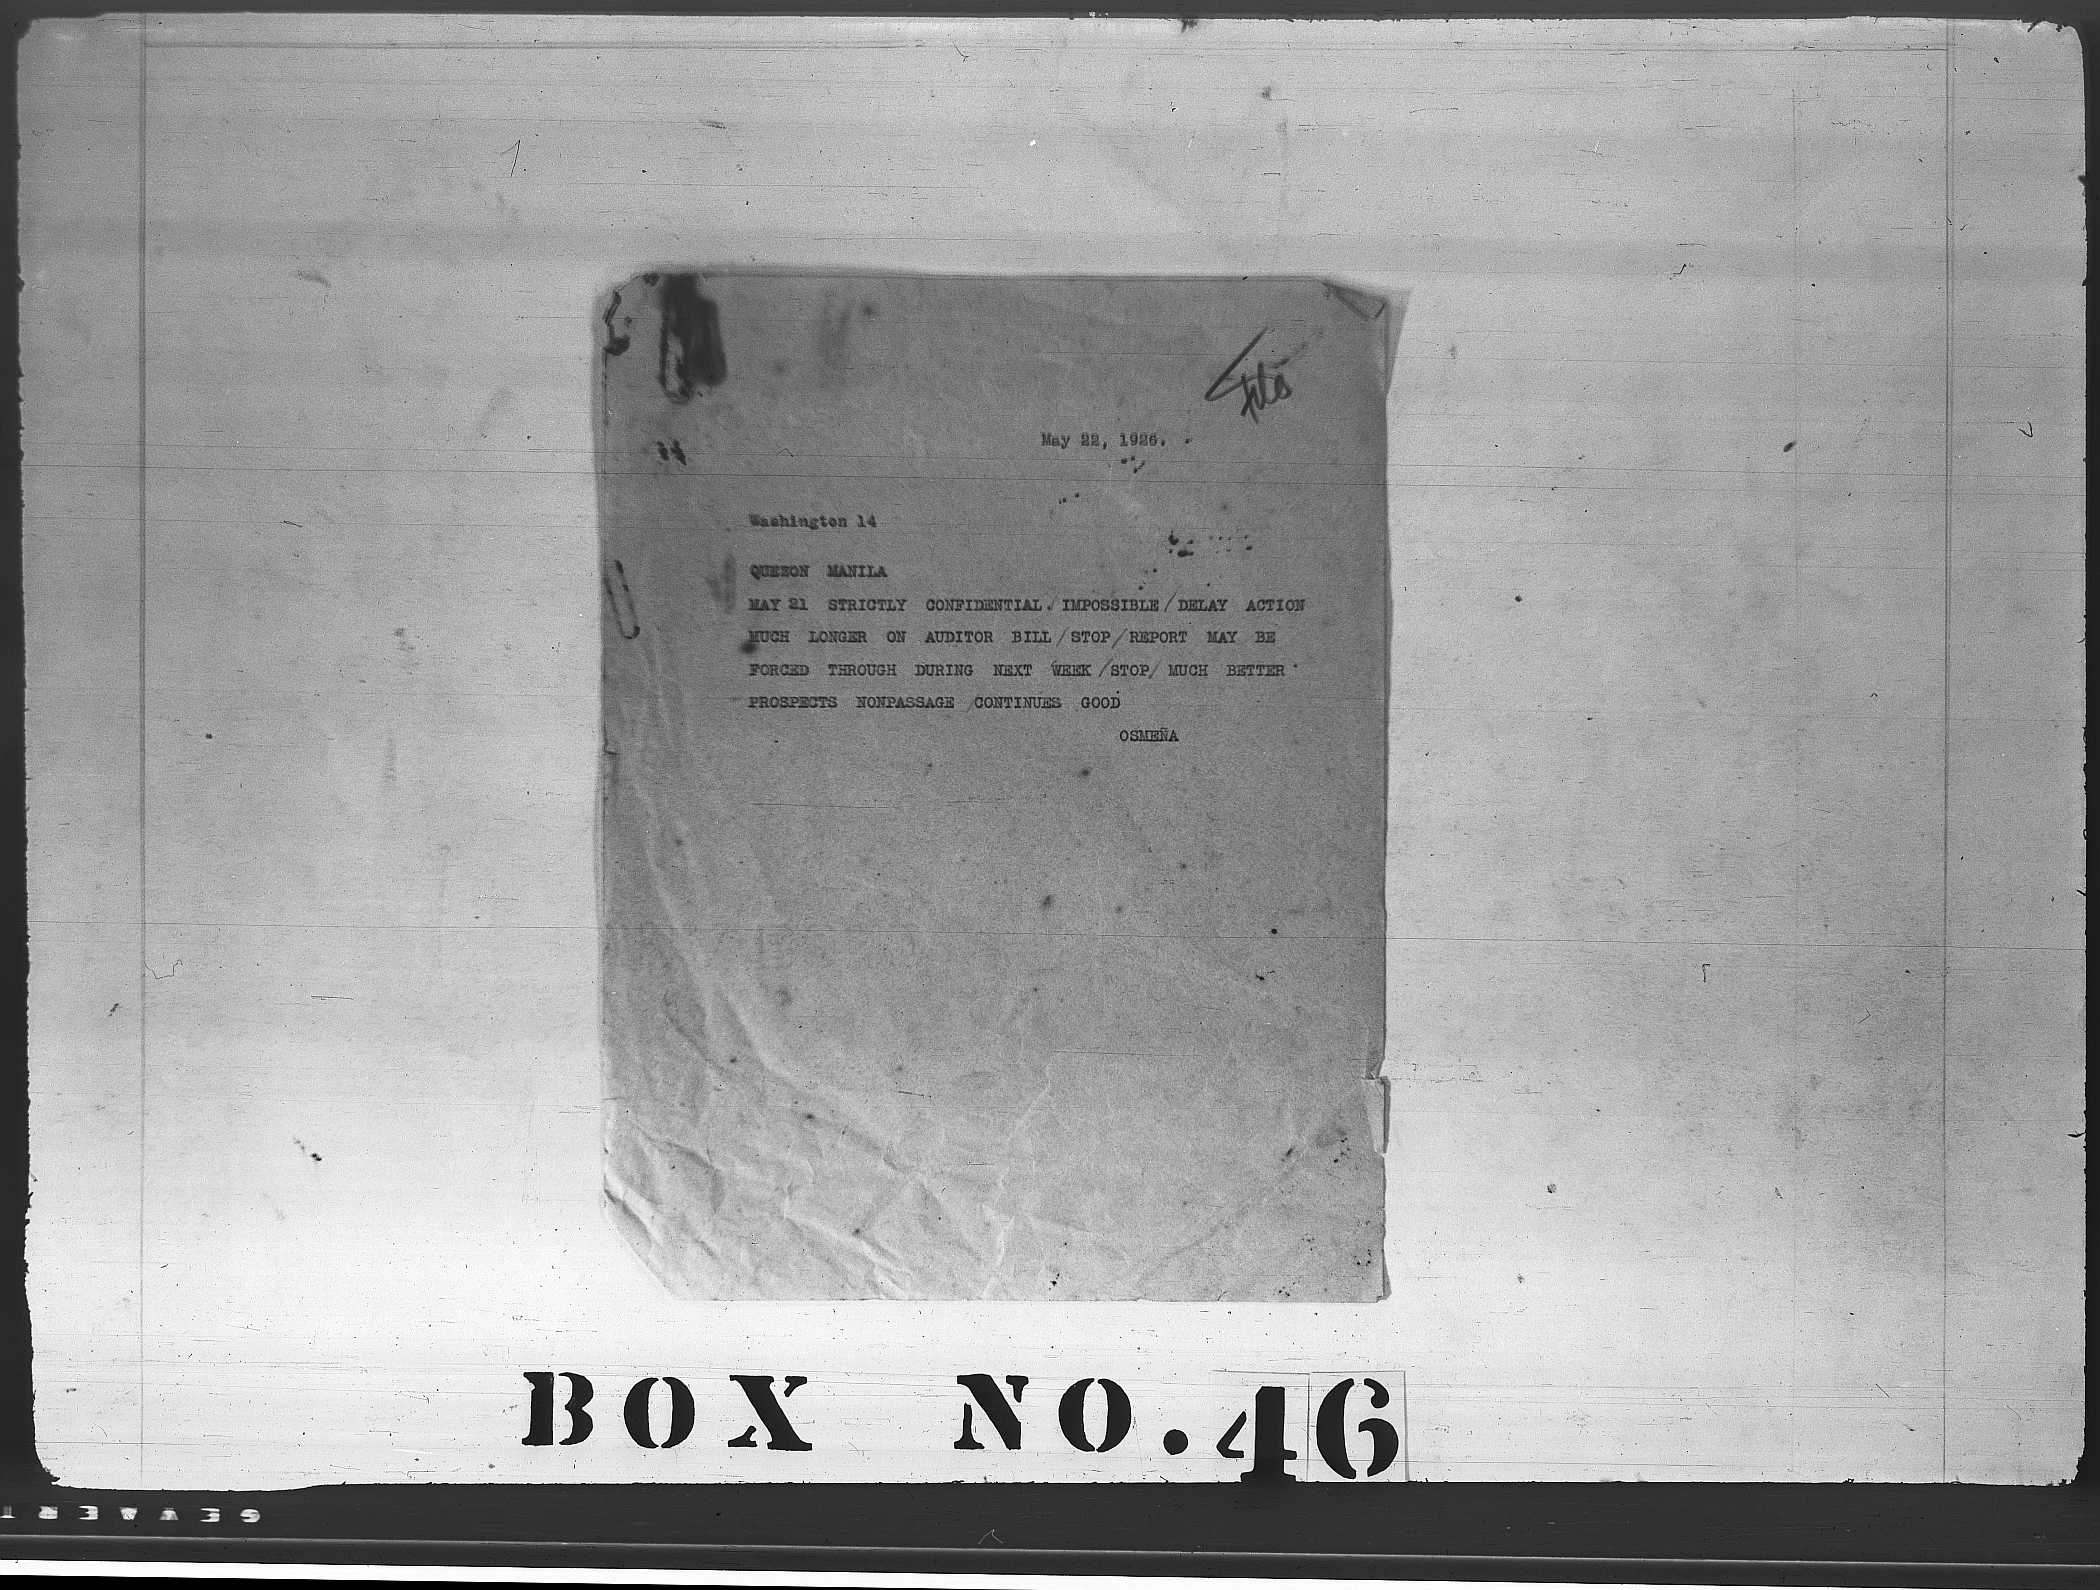 File
May 22, 1926.
Washington 14
QUEZON MANILA
MAY 21 STRICTLY CONFIDENTIAL / IMPOSSIBLE / DELAY ACTION
MUCH LONGER ON AUDITOR BILL / STOP / REPORT MAY BE
FORCED THROUGH DURING NEXT WEEK / STOP / MUCH BETTER
PROSPECTS NONPASSAGE / CONTINUES GOOD
OSMEÑA
BOX NO. 46
GEVAERT